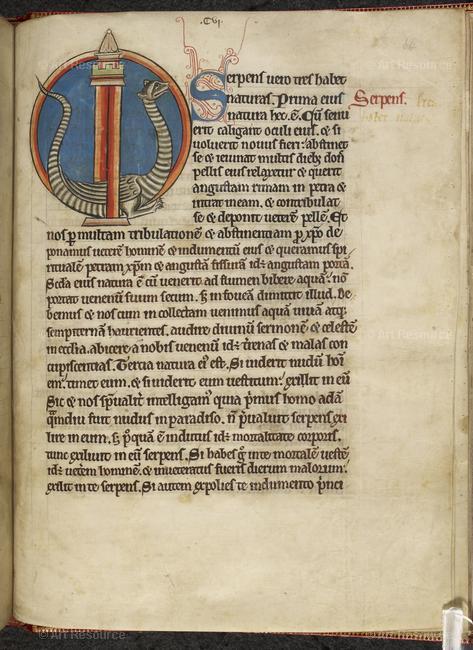 .CVI.
Serpens uero tres habet
naturas. Prima eius
natura hec .ē. Cū senu
erit caligant oculi eius. & si
uoluerit nouus fieri: abstinet
se & ieiunat multis dieb; don̄
pellis eius relaxetur & querit
angustam rimam in petra &
intrat in eam. & contribulat
se & deponit ueterē pellē. Et
nos p multam tribulationē & abstinentiam p xp̄o de
ponamus ueterē hominē & indumentū eius & queramus spi
ritualē petram xp̄m & angustā fissurā id; angustam portā.
Scd̄a eius natura ē cū uenerit ad flumen bibere aquā: nō
portat uenenū suum secum. s; in foueā dimittit illud. de
bemus & nos cum in collectam uenimus aquā uiuā atq;
sempiternā haurientes. audire diuinū sermonē & celestē
in ecclīa. abicere a nobis uenenū id; t̄renas & malas con
cupiscentias. Tercia natura ei' est. Si uiderit nudū hoī
em: timet eum. & si uiderit eum uestitum: exilit in eū
Sic & nos sp̄ualit̄ intelligam' quia p̄imus homo adā
q̄mdiu fuit nudus in paradiso. n̄ p̄ualuit serpens exi
lire in eum. s; p'quā ē indutus id; mortalitate corporis.
tunc exiliuit in eū serpens. Si habes g° inte mortalē uestē
id; uet̄em hominē. & inueteratus fueris dierum malorum:
exilit in te serpens. Si autem expolies te indumento p̄nci
Serpens.
© Art Resource
© Art Resource
© Art Resource
© Art Resource